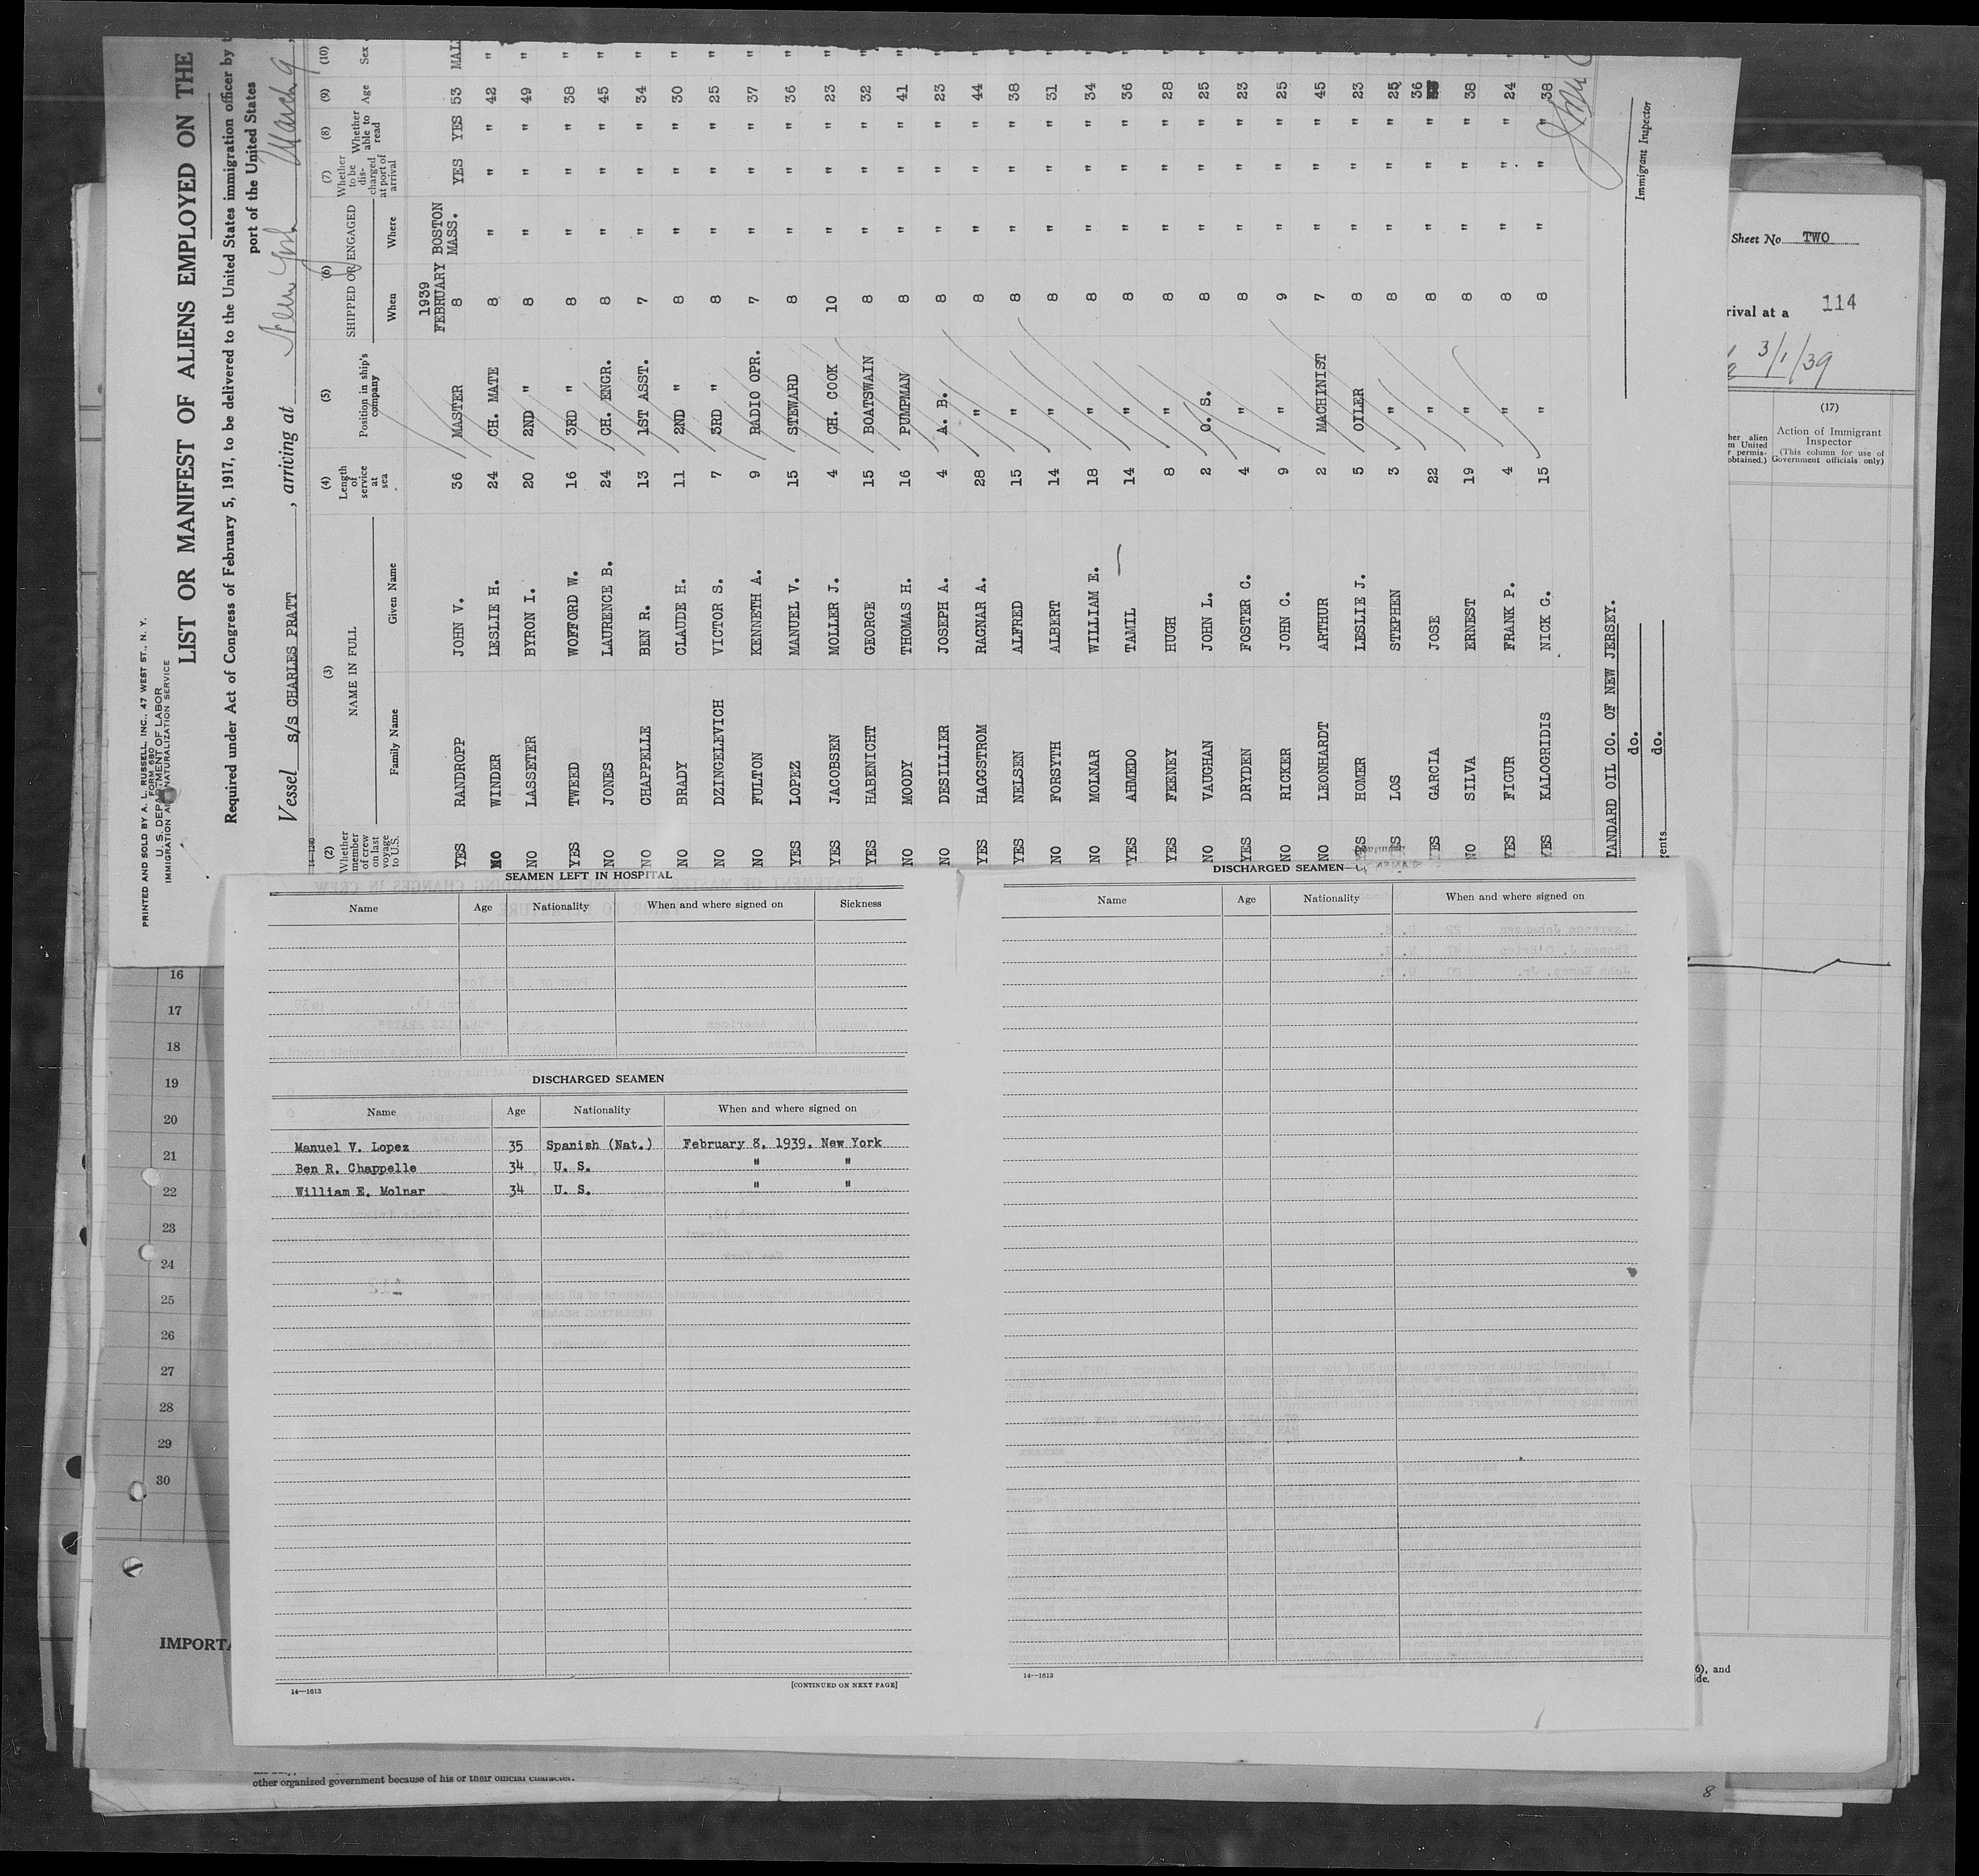 PRINTED AND SOLD BY A. L. RUSSELL, INC., 47 WEST ST., N. Y.
FORM 680
U. S. DEPARTMENT OF LABOR
IMMIGRATION AND NATURALIZATION SERVICE
LIST OR MANIFEST OF ALIENS EMPLOYED ON THE
Required under Act of Congress of February 5, 1917, to be delivered to the United States immigration officer by
port of the United States
Vessel S/S CHARLES PRATT, arriving at New York March 9,
14-1240
(2) (3) (4) (5) (6) (7) (8) (9) (10)
Whether member of crew on last voyage to U.S. NAME IN FULL Length of service at sea Position in ship's company SHIPPED OR ENGAGED Whether to be discharged at port of arrival Whether able to read Age Sex
Family Name Given Name When Where
1939
FEBRUARY BOSTON
YES RANDROPP JOHN V. 36 MASTER 8 MASS. YES YES 53 MAL
NO WINDER LESLIE H. 24 CH. MATE 8 " " " 42 "
NO LASSETER BYRON I. 20 2ND " 8 " " " 49 "
YES TWEED WOFFORD W. 16 3RD " 8 " " " 38 "
NO JONES LAURENCE B. 24 CH. ENGR. 8 " " " 45 "
NO CHAPPELLE BEN R. 13 1ST ASST. 7 " " " 34 "
NO BRADY CLAUDE H. 11 2ND " 8 " " " 30 "
NO DZINGELEVICH VICTOR S. 7 3RD " 8 " " " 25 "
NO FULTON KENNETH A. 9 RADIO OPR. 7 " " " 37 "
YES LOPEZ MANUEL V. 15 STEWARD 8 " " " 36 "
YES JACOBSEN MOLLER J. 4 CH. COOK 10 " " " 23 "
YES HABENICHT GEORGE 15 BOATSWAIN 8 " " " 32 "
NO MOODY THOMAS H. 16 PUMPMAN 8 " " " 41 "
NO DESILLIER JOSEPH A. 4 A. B. 8 " " " 23 "
YES HAGGSTROM RAGNAR A. 28 " 8 " " " 44 "
YES NELSEN ALFRED 15 " 8 " " " 38 "
NO FORSYTH ALBERT 14 " 8 " " " 31 "
NO MOLNAR WILLIAM E. 18 " 8 " " " 34 "
YES AHMEDO TAMIL 14 " 8 " " " 36 "
YES FEENEY HUGH 8 " 8 " " " 28 "
NO VAUGHAN JOHN L. 2 O. S. 8 " " " 25 "
YES DRYDEN FOSTER C. 4 " 8 " " " 23 "
NO RICKER JOHN C. 9 " 9 " " " 25 "
NO LEONHARDT ARTHUR 2 MACHINIST 7 " " " 45 "
YES HOMER LESLIE J. 5 OILER 8 " " " 23 "
YES LOS STEPHEN 3 " 8 " " " 25 "
YES GARCIA JOSE 22 " 8 " " " 36 "
NO SILVA ERNEST 19 " 8 " " " 38 "
YES FIGUR FRANK P. 4 " 8 " " " 24 "
YES KALOGRIDIS NICK G. 15 " 8 " " " 38 "
TANDARD OIL CO. OF NEW JERSEY.
do.
gents do.
Immigrant Inspector
Sheet No. TWO
rival at a 114
3/1/39
(17)
her alien
m United
r permis-
obtained.)
Action of Immigrant
Inspector
(This column for use of
Government officials only)
SEAMEN LEFT IN HOSPITAL
Name Age Nationality When and where signed on Sickness
DISCHARGED SEAMEN
Name Age Nationality When and where signed on
Manuel V. Lopez 35 Spanish (Nat.) February 8, 1939, New York
Ben R. Chappelle 34 U. S. " "
William E. Molnar 34 U. S. " "
14—1613 [CONTINUED ON NEXT PAGE]
DISCHARGED SEAMEN—
Name Age Nationality When and where signed on
14—1613
16
17
18
19
20
21
22
23
24
25
26
27
28
29
30
IMPORTA
6), and
ide.
other organized government because of his or their official character.
8